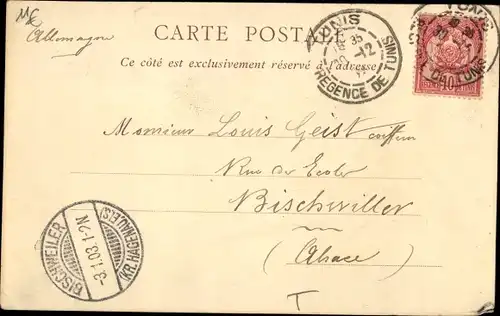 CARTE POSTALE
Ce côté est exclusivement réservé à l'adresse
Allemagne
TUNIS
RÉGENCE DE TUNIS
10
Monsieur Louis Geist coiffeur
Rue des Ecoles
Bischwiller
(Alsace)
T
BISCHWEILER
-3.1.03.1-2N
(KR. HAGENAU ELS)